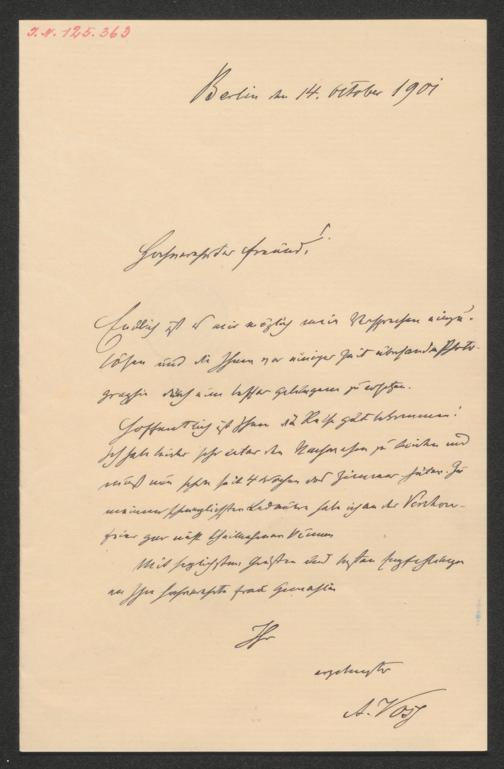 I.N. 125.363
Berlin den 14. October 1901
Hochverehrter Freund!
Endlich ist es mir möglich mein Versprechen einzu-
lösen und die Ihnen vor einiger Zeit übersandte Photo-
graphie durch eine besser gelungene zu ersetzen.
Hoffentlich ist Ihnen die Reise gut bekommen!
Ich habe leider sehr unter den Nachwehen zu leiden und
muß nun schon seit 4 Wochen das Zimmer hüten. Zu
meinem schmerzlichsten Bedauern habe ich an der Virchow-
feier gar nicht theilnehmen können
Mit herzlichsten Grüßen und besten Empfehlungen
an Ihre hochverehrte Frau Gemahlin
Ihr
ergebenster
A. Voß